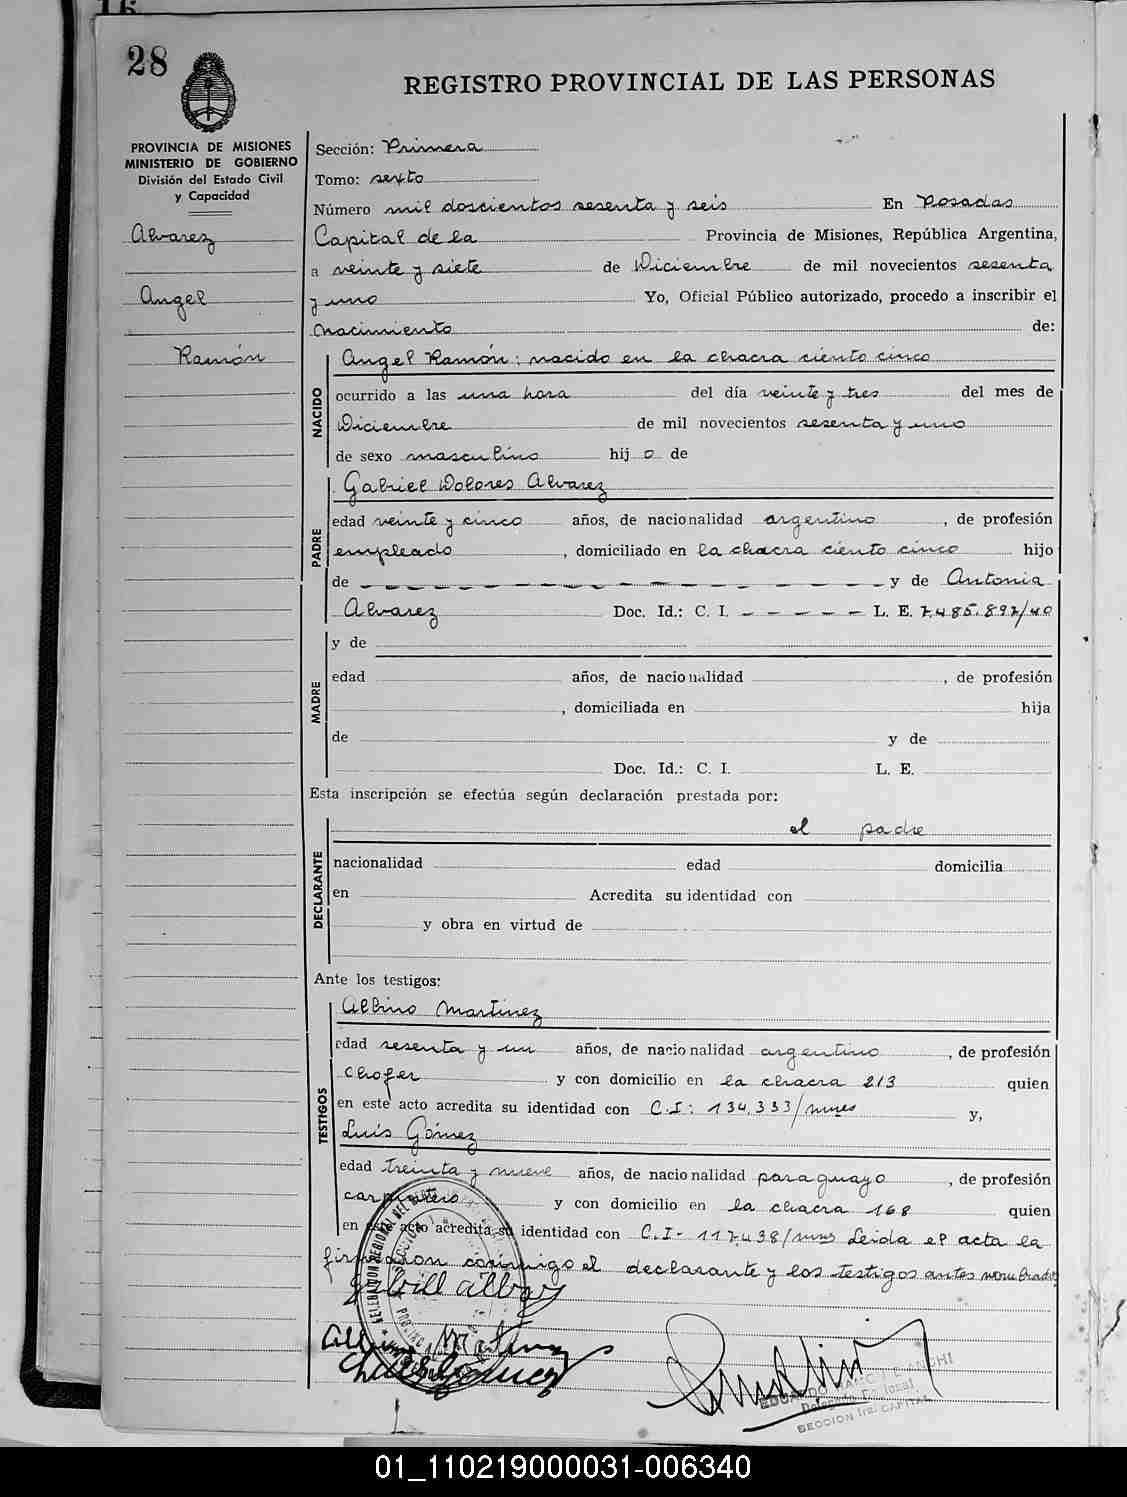 28
REGISTRO PROVINCIAL DE LAS PERSONAS
PROVINCIA DE MISIONES
MINISTERIO DE GOBIERNO
División del Estado Civil
y Capacidad
Alvarez
Angel
Ramón
Sección: Primera
Tomo: sexto
Número mil doscientos sesenta y seis En Posadas
Capital de la Provincia de Misiones, República Argentina,
a veinte y siete de Diciembre de mil novecientos sesenta
y uno Yo, Oficial Público autorizado, procedo a inscribir el
Nacimiento de:
NACIDO
Angel Ramón: nacido en la chacra ciento cinco
ocurrido a las una hora del día veinte y tres del mes de
Diciembre de mil novecientos sesenta y uno
de sexo masculino hij o de
PADRE
Gabriel Dolores Alvarez
edad veinte y cinco años, de nacionalidad argentino, de profesión
empleado, domiciliado en la chacra ciento cinco hijo
de - - - - - - - - - - - - - y de Antonia
Alvarez Doc. Id.: C. I. - - - - - L. E. 7.485.897/40
MADRE
y de
edad años, de nacionalidad , de profesión
, domiciliada en hija
de y de
Doc. Id.: C. I. L. E.
Esta inscripción se efectúa según declaración prestada por:
el padre
DECLARANTE
nacionalidad edad domicilia
en Acredita su identidad con
y obra en virtud de
Ante los testigos:
TESTIGOS
Albino Martinez
edad sesenta y un años, de nacionalidad argentino, de profesión
Chofer y con domicilio en la chacra 213 quien
en este acto acredita su identidad con C.I: 134.333/mnes y,
Luis Gómez
edad treinta y nueve años, de nacionalidad paraguayo, de profesión
carpintero y con domicilio en la chacra 168 quien
en este acto acredita su identidad con C.I- 117.438/mnes Leida el acta la
firmaron conmigo el declarante y los testigos antes nombrados
SECCION 1ra. CAPITAL
01_110219000031-006340